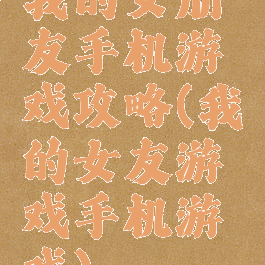 我的女朋
友手机游
戏攻略(我
的女友游
戏手机游
戏)